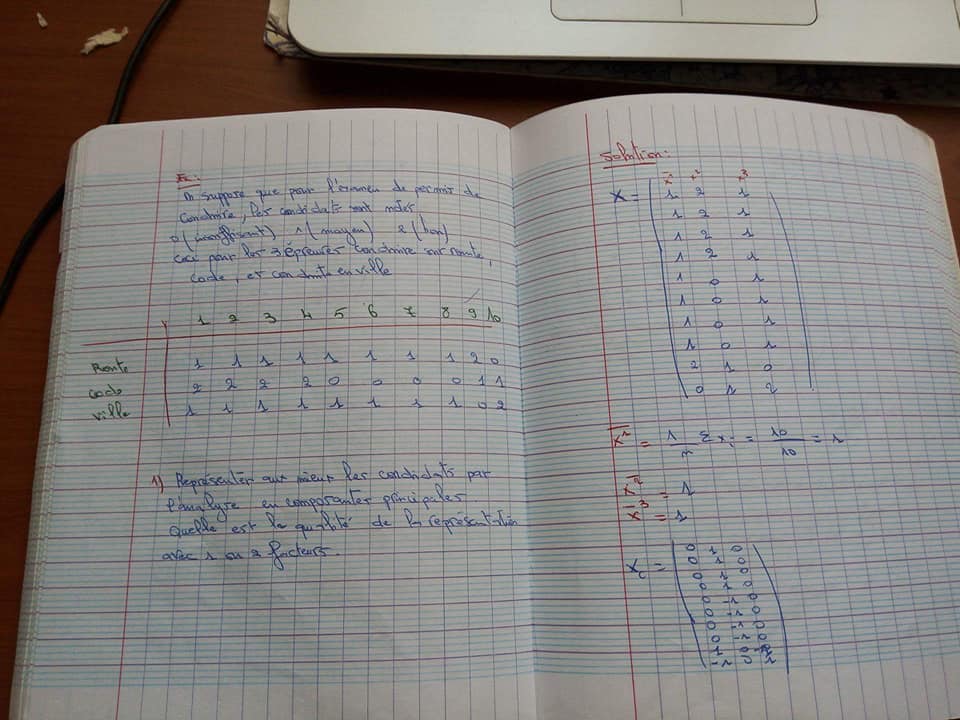 Ex:
On suppose que pour l'examen de permis de
conduire, les candidats sont notés
0 (insuffisant) 1 (moyen) 2 (bon)
ceci pour les 3 épreuves conduire sur route,
code, et conduite en ville
1 2 3 4 5 6 7 8 9 10
Route 1 1 1 1 1 1 1 1 2 0
code 2 2 2 2 0 0 0 0 1 1
ville 1 1 1 1 1 1 1 1 0 2
1) Représenter aux mieux les condidats par
l'analyse en composantes principales.
Quelle est la qualité de la représentation
avec 1 ou 2 facteurs.
Solution:
x¹ x² x³
X = 1 2 1
1 2 1
1 2 1
1 2 1
1 0 1
1 0 1
1 0 1
1 0 1
2 1 0
0 1 2
x̄¹ = 1/n Σ xᵢ = 10/10 = 1
x̄² = 1
x̄³ = 1
Xc = 0 1 0
0 1 0
0 1 0
0 1 0
0 -1 0
0 -1 0
0 -1 0
0 -1 0
1 0 -1
-1 0 1